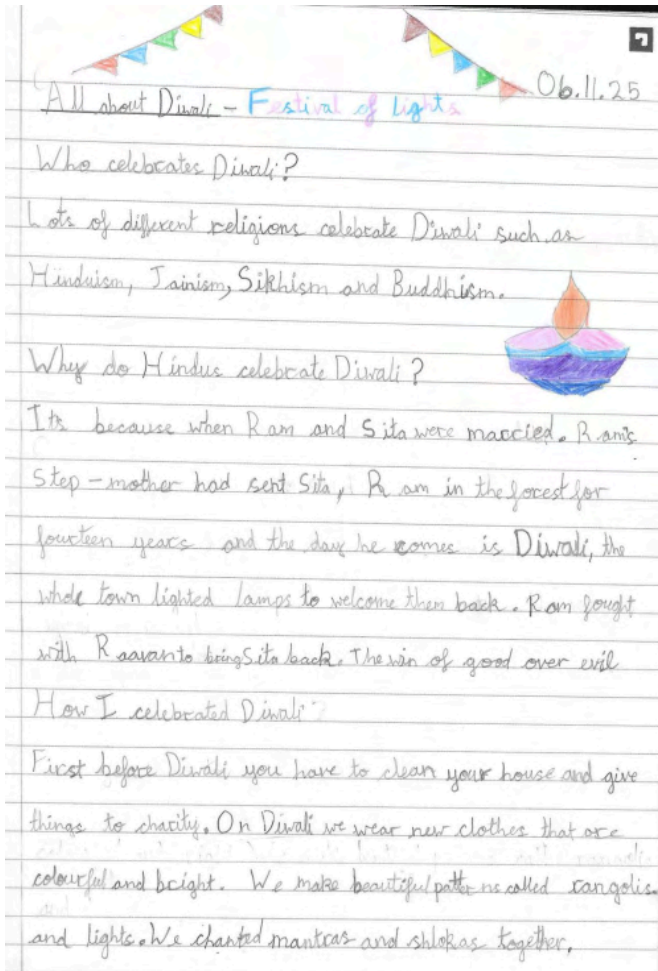 06.11.25
All about Diwali - Festival of Lights
Who celebrates Diwali?
Lots of different religions celebrate Diwali such as
Hinduism, Jainism, Sikhism and Buddhism.
Why do Hindus celebrate Diwali?
It's because when Ram and Sita were married. Ram's
Step-mother had sent Sita, Ram in the forest for
fourteen years and the day he comes is Diwali, the
whole town lighted lamps to welcome them back. Ram fought
with Raavan to bring Sita back. The win of good over evil
How I celebrated Diwali?
First before Diwali you have to clean your house and give
things to charity. On Diwali we wear new clothes that are
colourful and bright. We make beautiful patterns called rangolis
and lights. We chanted mantras and shlokas together.